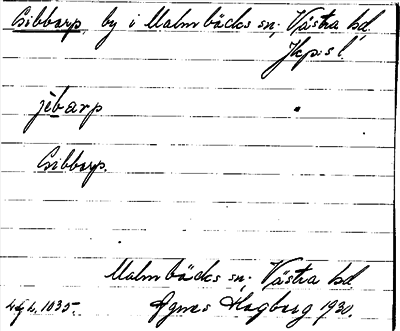 Gibbarp, by i Malmbäcks sn, Västra hd.
Jkp:s l.
jẹbarp
Gibbarp.
Malmbäcks sn, Västra hd
Agnes Hagberg 1930.